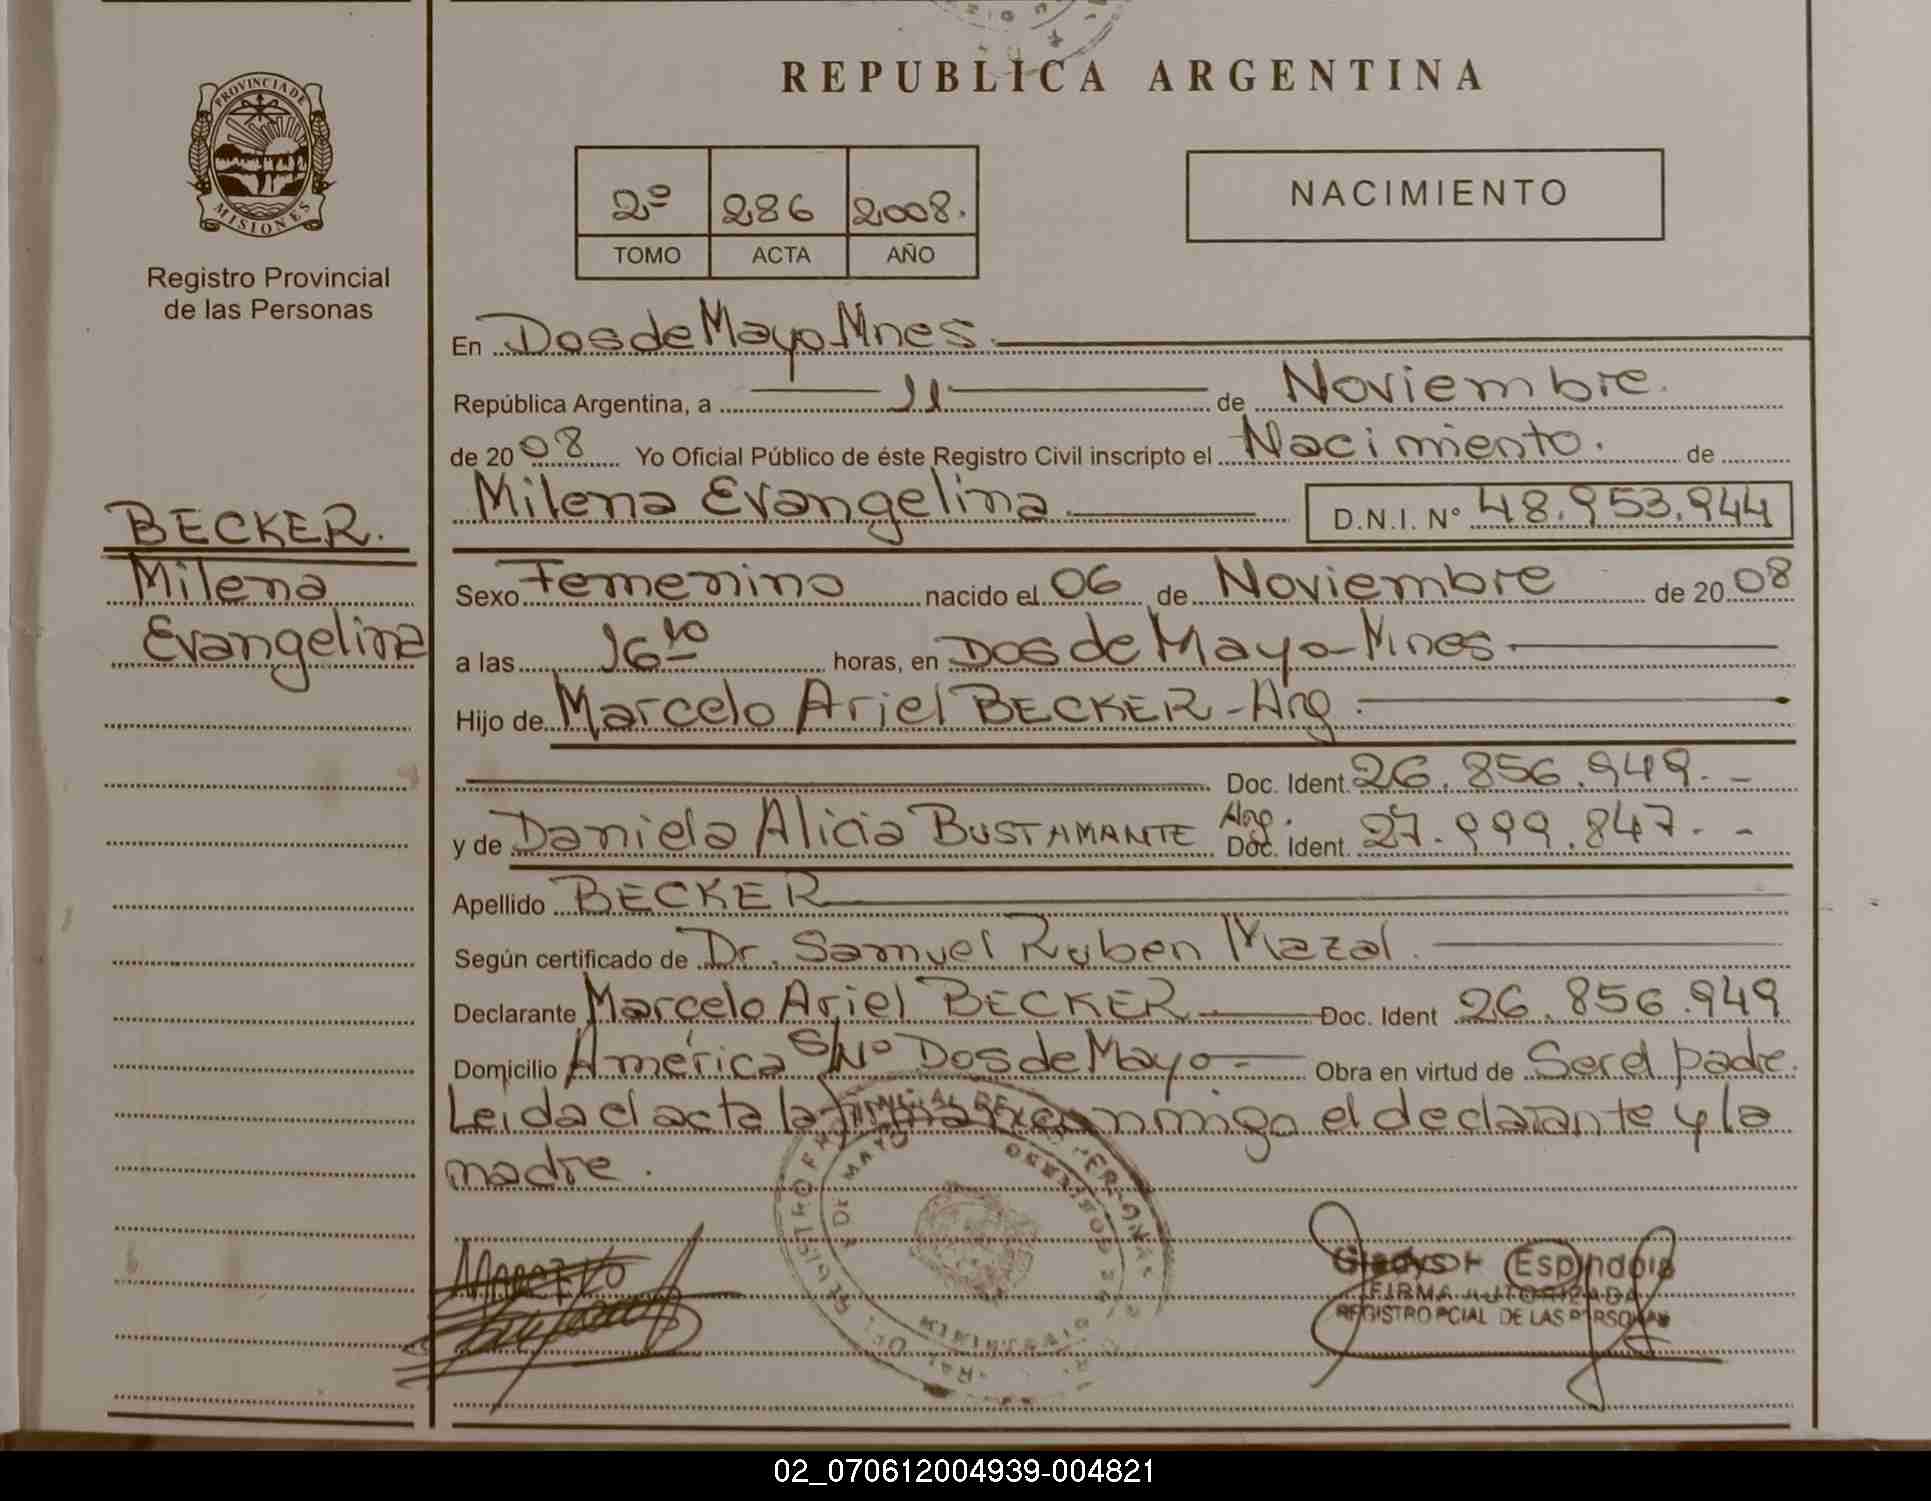 REPUBLICA ARGENTINA
PROVINCIA DE
MISIONES
Registro Provincial
de las Personas
2º 286 2008.
TOMO ACTA AÑO
NACIMIENTO
En Dos de Mayo Mnes.
República Argentina, a 11 de Noviembre.
de 2008 Yo Oficial Público de éste Registro Civil inscripto el Nacimiento. de
Milena Evangelina D.N.I. Nº 48.953.944
BECKER.
Milena
Evangelina
Sexo Femenino nacido el 06 de Noviembre de 2008
a las 16 10 horas, en Dos de Mayo-Mnes
Hijo de Marcelo Ariel BECKER-Arg.
Doc. Ident. 26.856.949.-
y de Daniela Alicia BUSTAMANTE Arg. Doc. Ident. 27.999.847.-
Apellido BECKER
Según certificado de Dr. Samuel Ruben Mazal.
Declarante Marcelo Ariel BECKER Doc. Ident 26.856.949
Domicilio América S/Nº Dos de Mayo- Obra en virtud de Ser el padre.
Leida el acta la firman conmigo el declarante y la
madre.
Gladys Espindola
FIRMA AUTORIZADA
REGISTRO PCIAL DE LAS PERSONAS
02_070612004939-004821